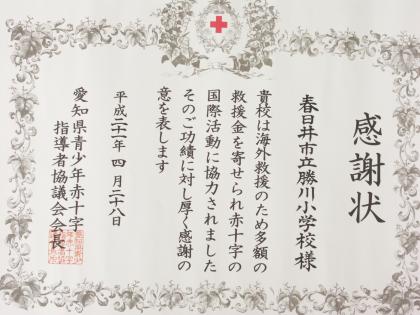 感謝状
春日井市立勝川小学校様
貴校は海外救援のため多額の
救援金を寄せられ赤十字の
国際活動に協力されました
そのご功績に対し厚く感謝の
意を表します
平成二十一年 四月二十八日
愛知県青少年赤十字
指導者協議会会長